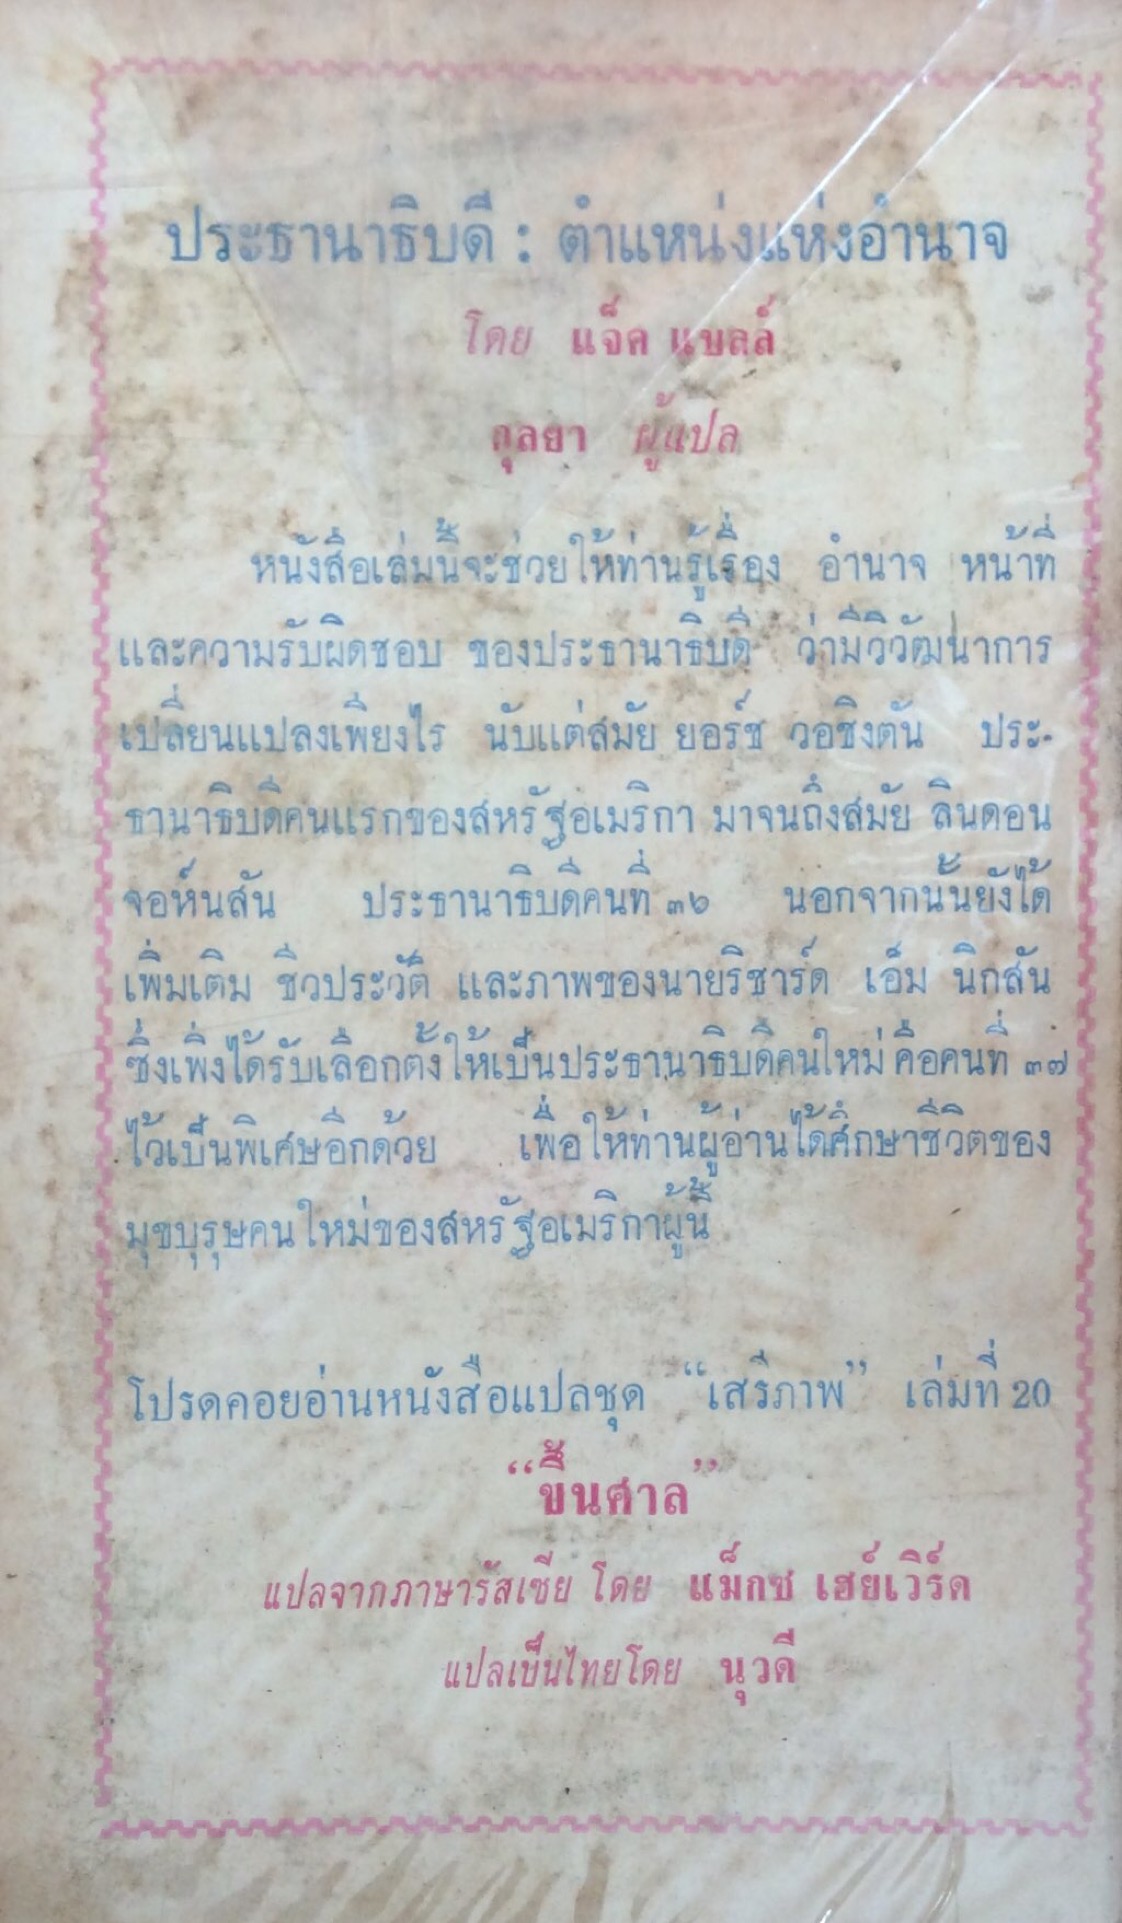 ประธานาธิบดี : ตำแหน่งแห่งอำนาจ
โดย แจ็ค แบลล์
กุลยา ผู้แปล
หนังสือเล่มนี้จะช่วยให้ท่านรู้เรื่อง อำนาจ หน้าที่
และความรับผิดชอบ ของประธานาธิบดี ว่ามีวิวัฒนาการ
เปลี่ยนแปลงเพียงไร นับแต่สมัย ยอร์ช วอชิงตัน ประ-
ธานาธิบดีคนแรกของสหรัฐอเมริกา มาจนถึงสมัย ลินดอน
จอห์นสัน ประธานาธิบดีคนที่ ๓๖ นอกจากนั้นยังได้
เพิ่มเติม ชีวประวัติ และภาพของนายริชาร์ด เอ็ม นิกสัน
ซึ่งเพิ่งได้รับเลือกตั้งให้เป็นประธานาธิบดีคนใหม่ คือคนที่ ๓๗
ไว้เป็นพิเศษอีกด้วย เพื่อให้ท่านผู้อ่านได้ศึกษาชีวิตของ
มุขบุรุษคนใหม่ของสหรัฐอเมริกาผู้นี้
โปรดคอยอ่านหนังสือแปลชุด “เสรีภาพ” เล่มที่ 20
“ขึ้นศาล”
แปลจากภาษารัสเซีย โดย แม็กซ เฮย์เวิร์ด
แปลเป็นไทยโดย นุวดี